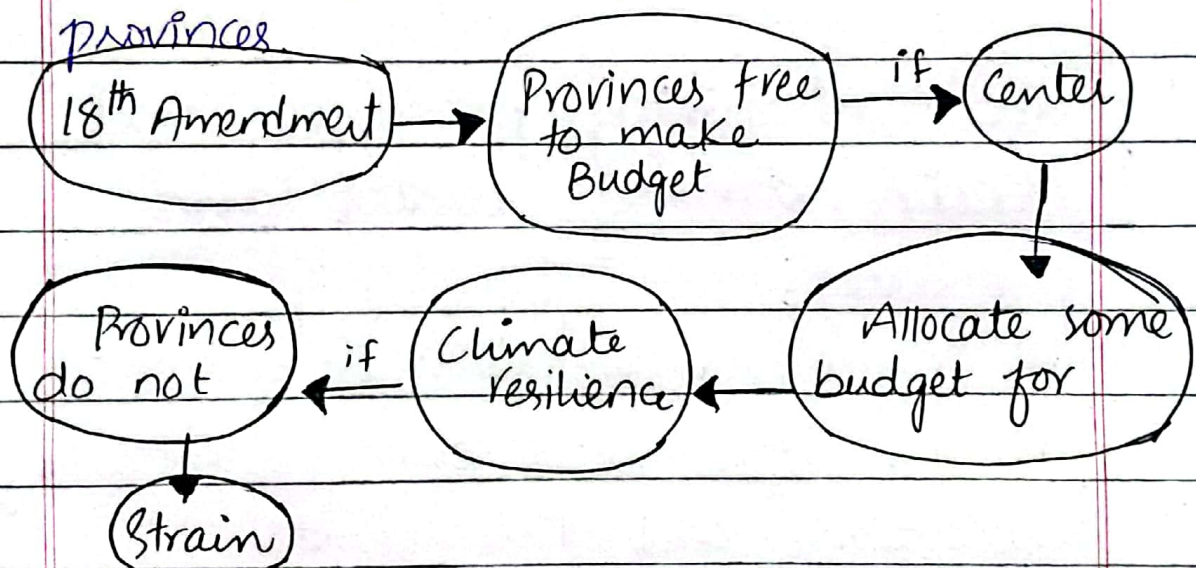 provinces.
18th Amendment
Provinces free
to make
Budget
if
Center
Allocate some
budget for
Climate
resilience
if
Provinces
do not
Strain